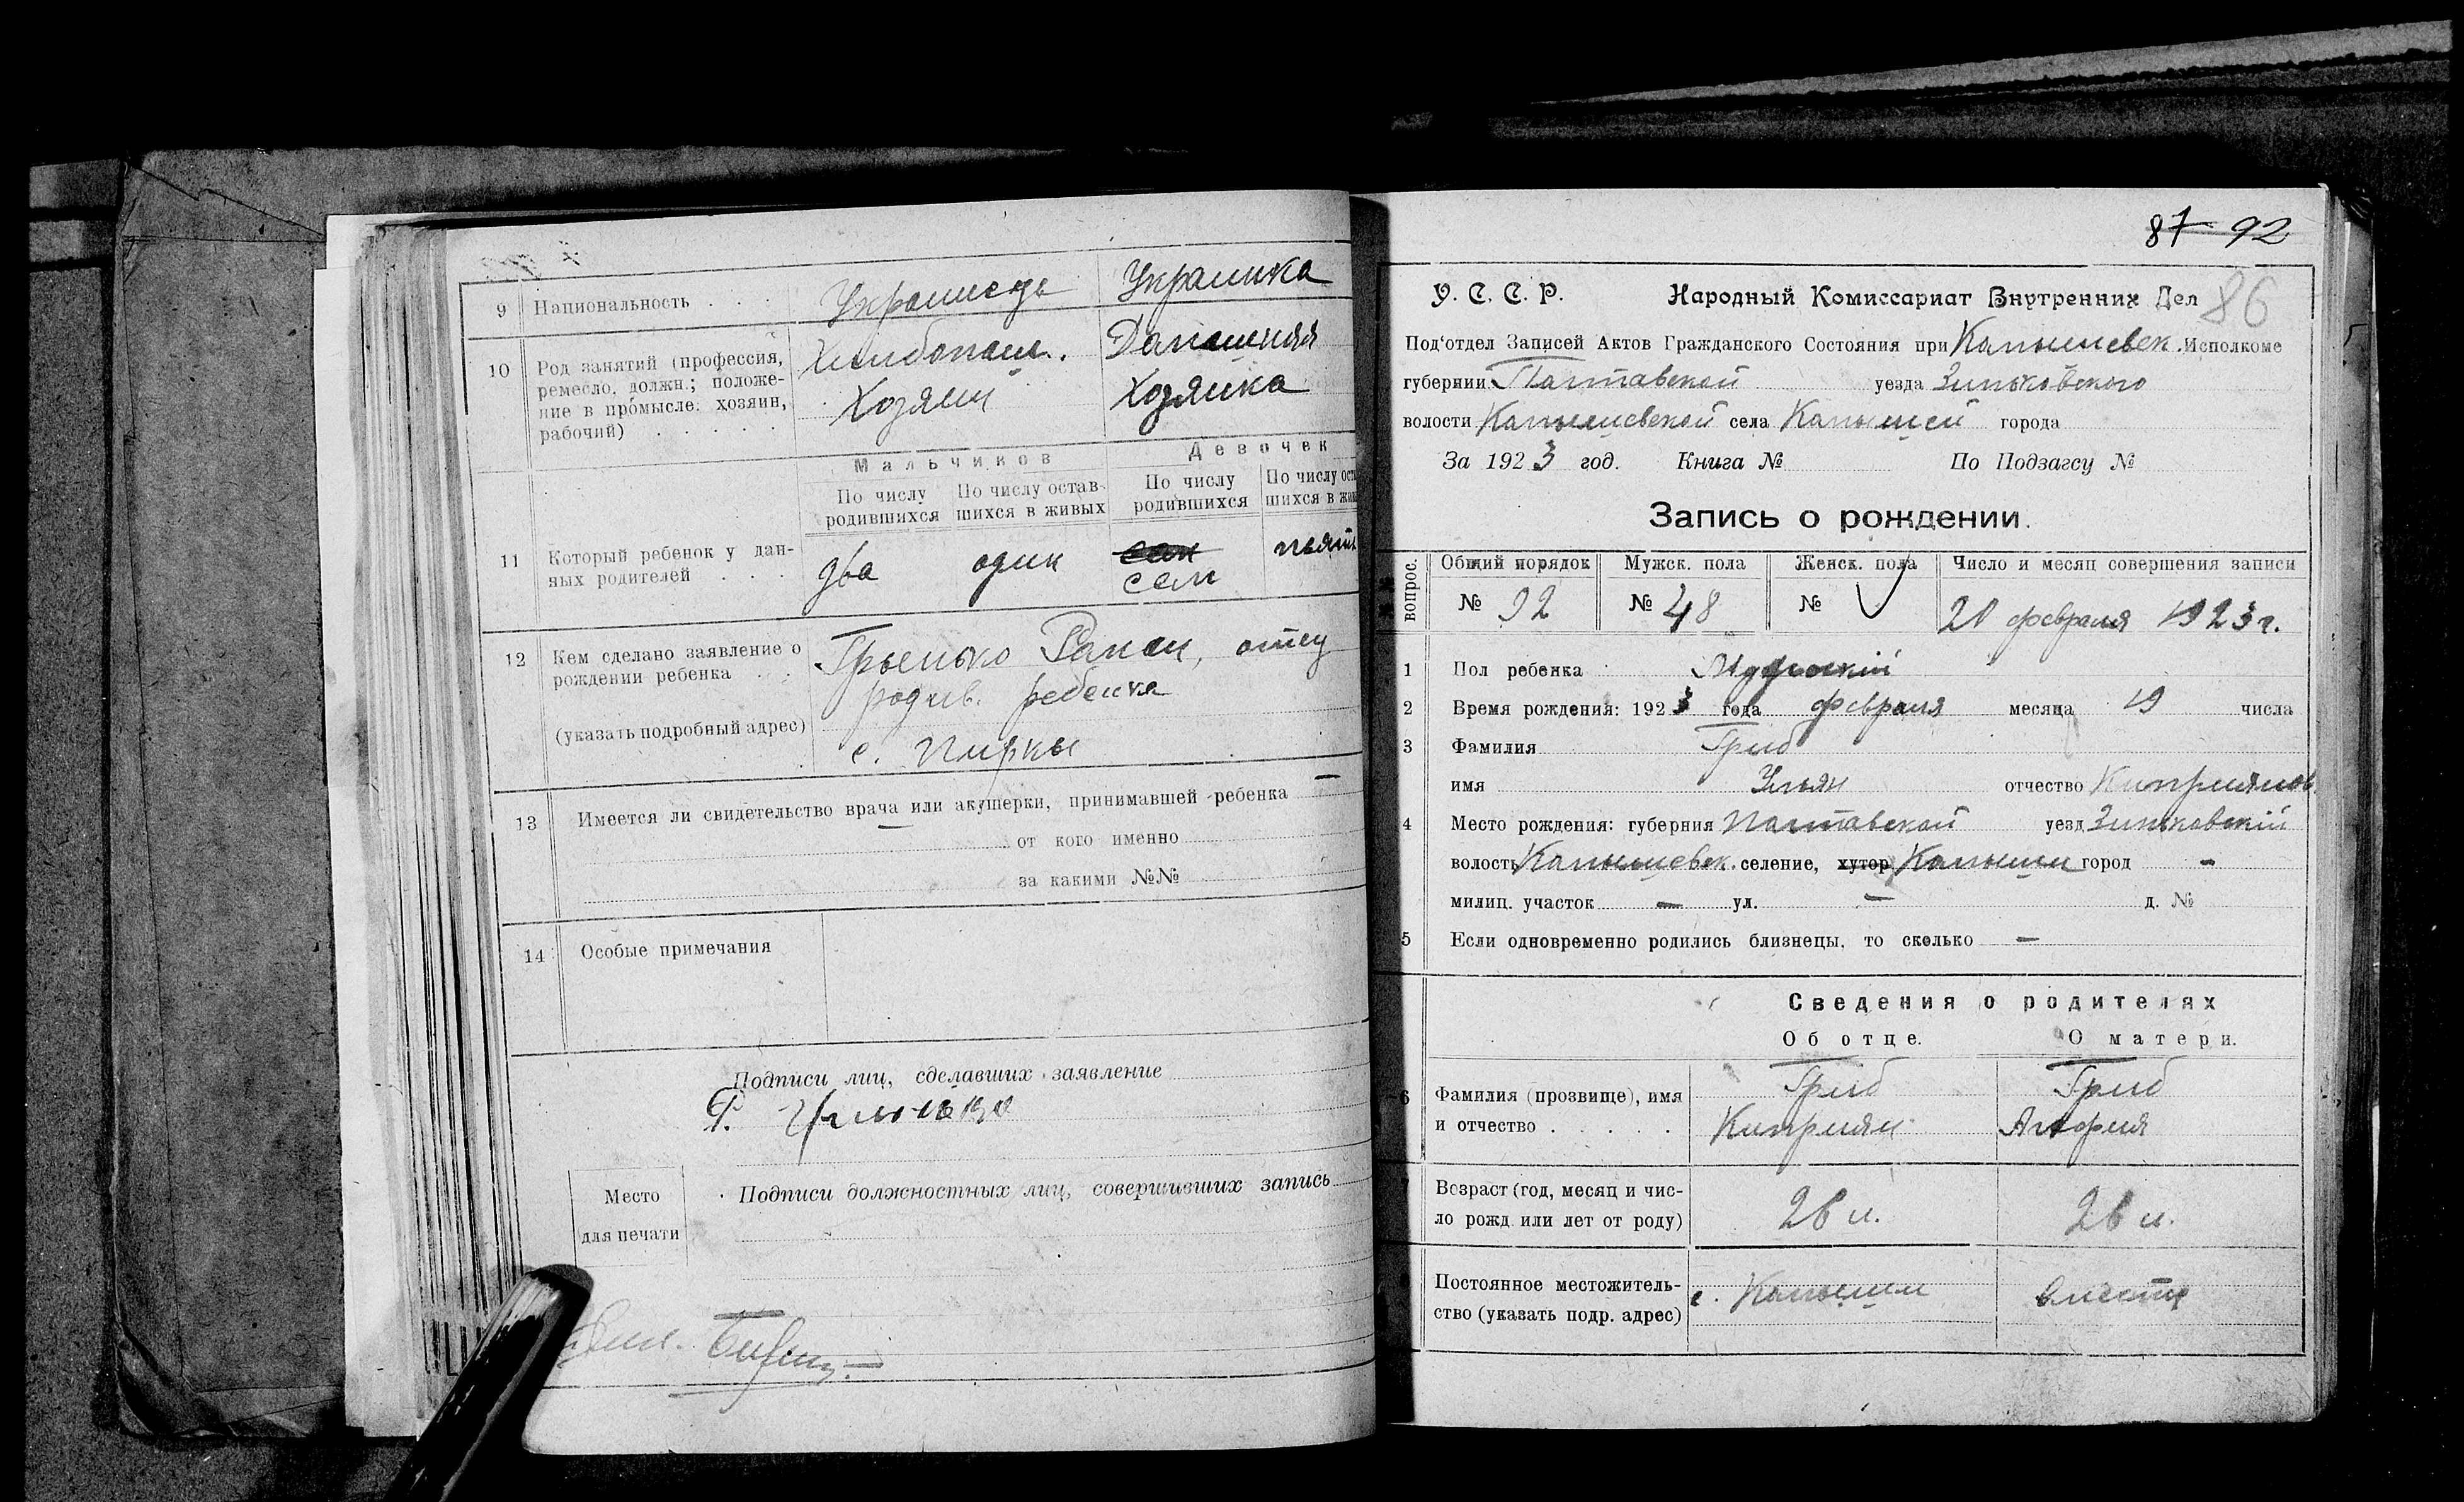 9 Национальность . . . Украинец Украинка
10 Род занятий (профессия, ремесло, должн.; положе-
ние в промысле: хозяин,
рабочий) . . . . .
Хлебопаш. Домашняя
Хозяин Хозяйка
Мальчиков Девочек
По числу родившихся По числу остав-шихся в живых По числу родившихся По числу оста шихся в жив
11 Который ребенок у дан-
ных родителей . . .
два один сем
12 Кем сделано заявление о
рождении ребенка . . .
(указать подробный адрес)
отец
родив. ребенка
с. Пирки
13 Имеется ли свидетельство врача или акушерки, принимавшей ребенка —
от кого именно
за какими №№
14 Особые примечания
Подписи лиц, сделавших заявление
Место
для печати
Подписи должностных лиц, совершивших запись
87 92
86
У. С. С. Р. Народный Комиссариат Внутренних Дел
Под'отдел Записей Актов Гражданского Состояния при Исполкоме
губернии Полтавской уезда Зиньковского
волости села города
За 1923 год. Книга № По Подзагсу №
Запись о рождении.
вопрос. Общий порядок Мужск. пола Женск. пола Число и месяц совершения записи
№ 92 № 48 № 20 февраля 1923 г.
1 Пол ребенка Мужский
2 Время рождения: 1923 года февраля месяца 19 числа
3 Фамилия Гриб
имя Ульян отчество Киприянов
4 Место рождения: губерния Полтавской уезд Зиньковский
волость селение, хутор город —
милиц. участок — ул. — д. №
5 Если одновременно родились близнецы, то сколько —
Сведения о родителях
Об отце. О матери.
6 Фамилия (прозвище), имя
и отчество . . . . .
Гриб Гриб
Киприян Агафия
Возраст (год, месяц и чис-
ло рожд. или лет от роду)
26 л. 26 л.
Постоянное местожитель-
ство (указать подр. адрес)
с. вместе